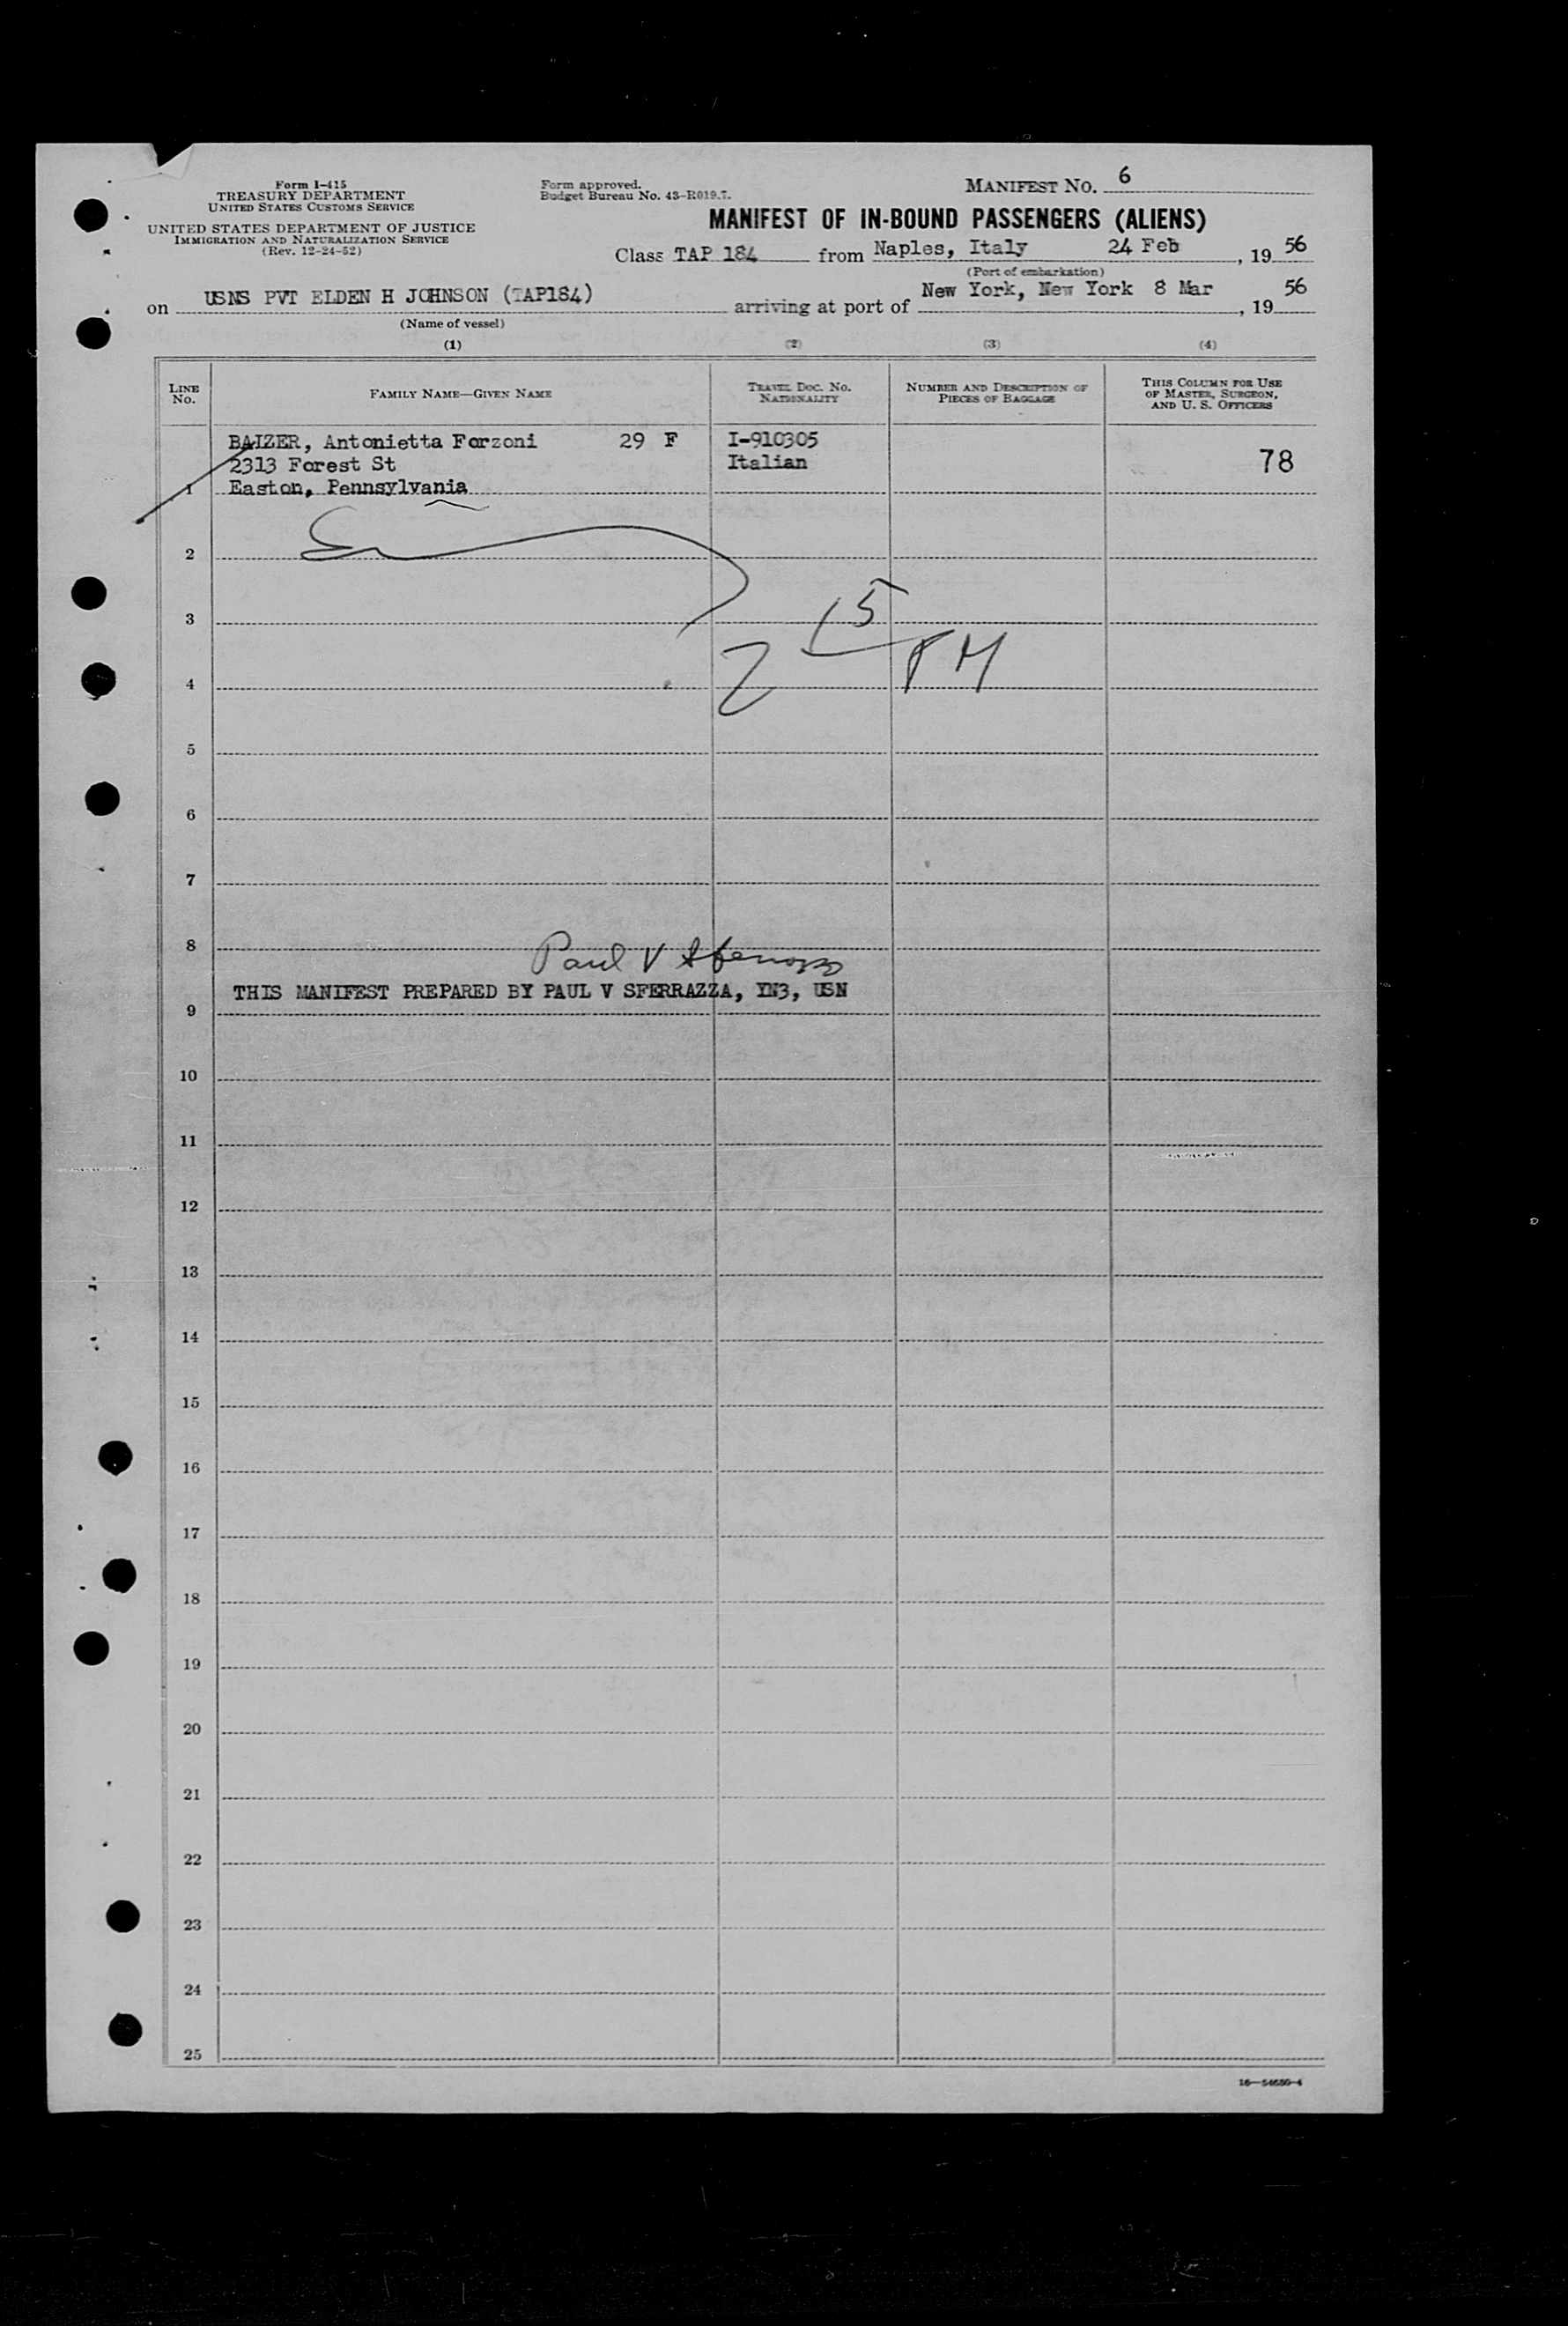 Form I-415
TREASURY DEPARTMENT
UNITED STATES CUSTOMS SERVICE
UNITED STATES DEPARTMENT OF JUSTICE
IMMIGRATION AND NATURALIZATION SERVICE
(Rev. 12-24-52)
Form approved.
Budget Bureau No. 43-R019.7.
MANIFEST NO. 6
MANIFEST OF IN-BOUND PASSENGERS (ALIENS)
Class TAP 184 from Naples, Italy 24 Feb, 19 56
(Port of embarkation)
on USNS PVT ELDEN H JOHNSON (TAP184) arriving at port of New York, New York 8 Mar, 19 56
(Name of vessel)
(1) (2) (3) (4)
LINE NO. FAMILY NAME—GIVEN NAME TRAVEL DOC. NO. NATIONALITY NUMBER AND DESCRIPTION OF PIECES OF BAGGAGE THIS COLUMN FOR USE OF MASTER, SURGEON, AND U. S. OFFICERS
BAIZER, Antonietta Forzoni 29 F I-910305
2313 Forest St Italian 78
1 Easton, Pennsylvania
2
3
15
4
2 PM
5
6
7
8
Paul V Sferrazza
THIS MANIFEST PREPARED BY PAUL V SFERRAZZA, YN3, USN
9
10
11
12
13
14
15
16
17
18
19
20
21
22
23
24
25
16—54680-4